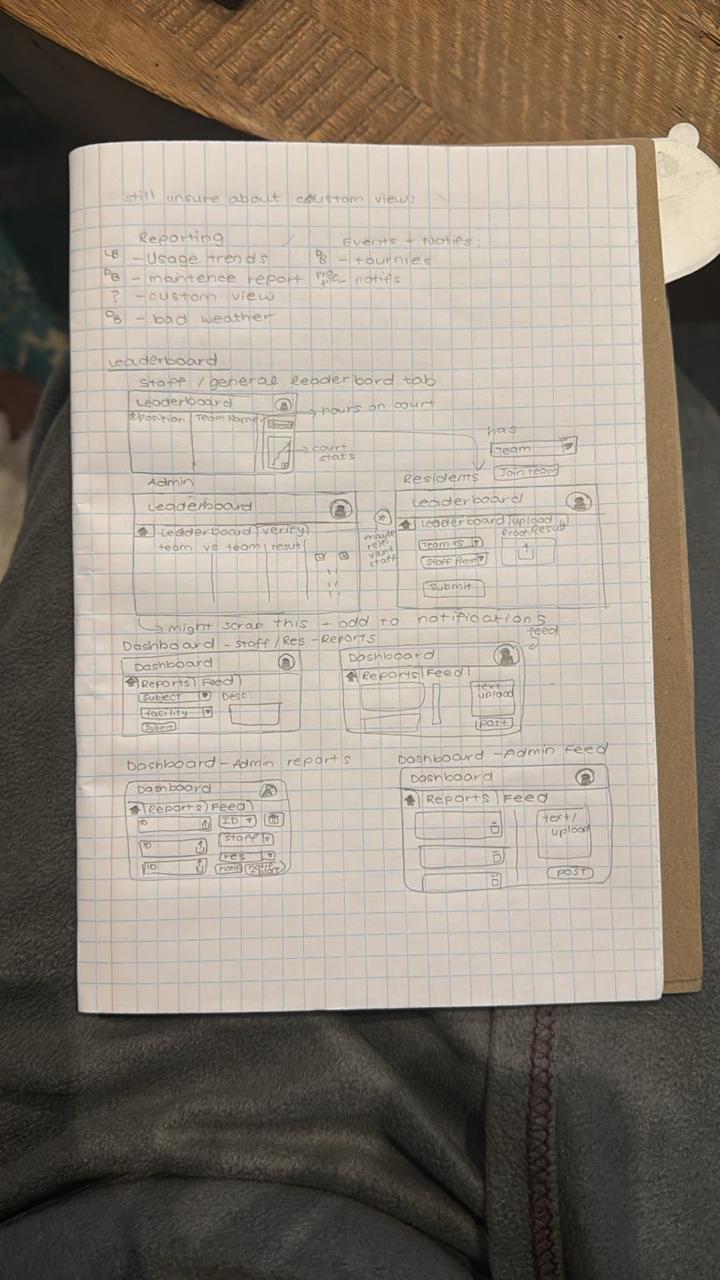 still unsure about custom view:
Reporting
LB - Usage trends
DB - maintence report
? - custom view
DB - bad weather
Events + Notifs:
DB - tournies
notifs
Leaderboard
Staff / general leaderbord tab
Leaderboard
Position Team Name
→ hours on court
→ court stats
has
Team
Join team
Admin
Leaderboard
Leaderboard verify
team vs team result
maybe relevant staff
Residents
Leaderboard
Leaderboard upload
Proof Result
Team vs
Staff
Submit
might scrap this + add to notifications
Dashboard - Staff/Res - Reports
Dashboard
Reports Feed
Subject
Desc
facility
Submit
feed
Dashboard
Reports Feed
text upload
post
Dashboard - Admin reports
Dashboard
Reports Feed
ID
ID
ID
ID
staff
res
notif
Dashboard - Admin Feed
Dashboard
Reports Feed
text/
upload
post